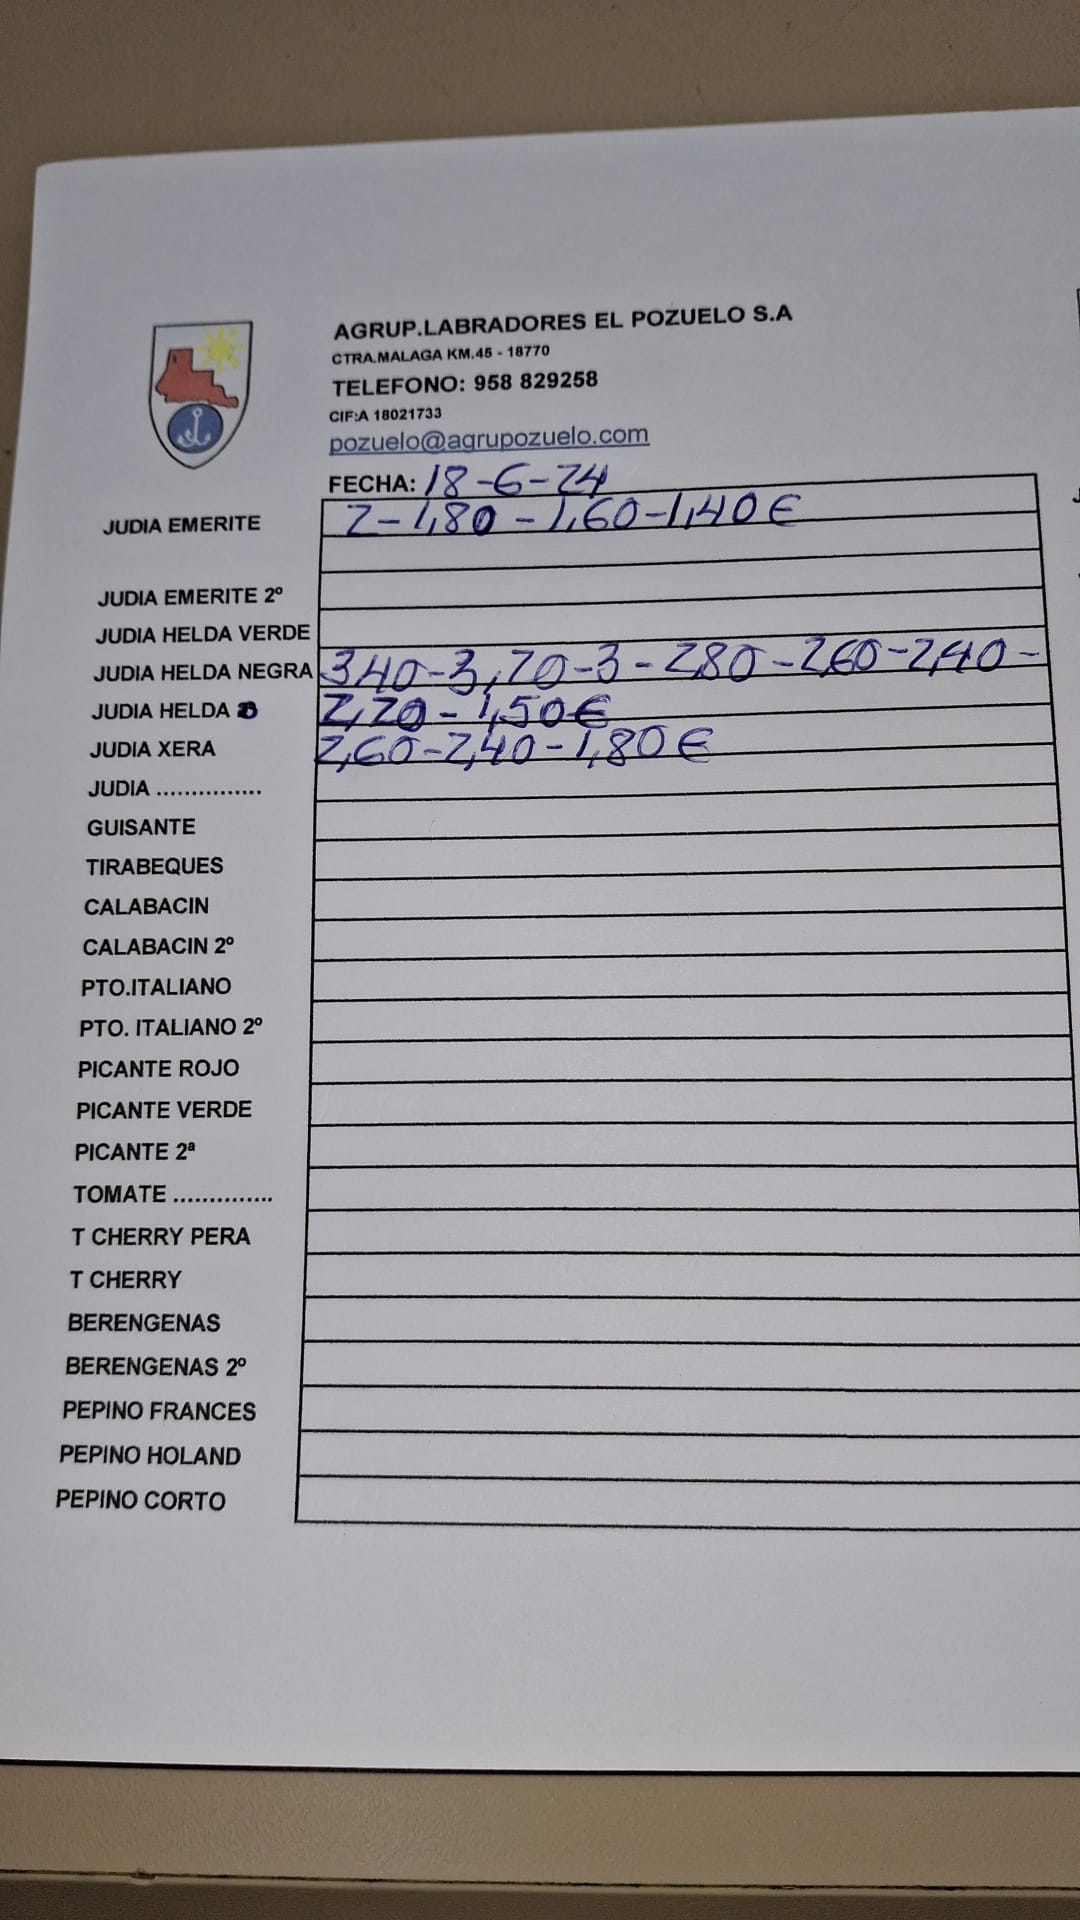 AGRUP.LABRADORES EL POZUELO S.A
CTRA.MALAGA KM.45 - 18770
TELEFONO: 958 829258
CIF:A 18021733
pozuelo@agrupozuelo.com
FECHA: 18-6-24
JUDIA EMERITE 2-1,80-1,60-1,40€
JUDIA EMERITE 2º
JUDIA HELDA VERDE
JUDIA HELDA NEGRA 3,40-3,20-3-2,80-2,60-2,40-
JUDIA HELDA 2,20-1,50€
JUDIA XERA 2,60-2,40-1,80€
JUDIA ...............
GUISANTE
TIRABEQUES
CALABACIN
CALABACIN 2º
PTO.ITALIANO
PTO. ITALIANO 2º
PICANTE ROJO
PICANTE VERDE
PICANTE 2ª
TOMATE ..............
T CHERRY PERA
T CHERRY
BERENGENAS
BERENGENAS 2º
PEPINO FRANCES
PEPINO HOLAND
PEPINO CORTO